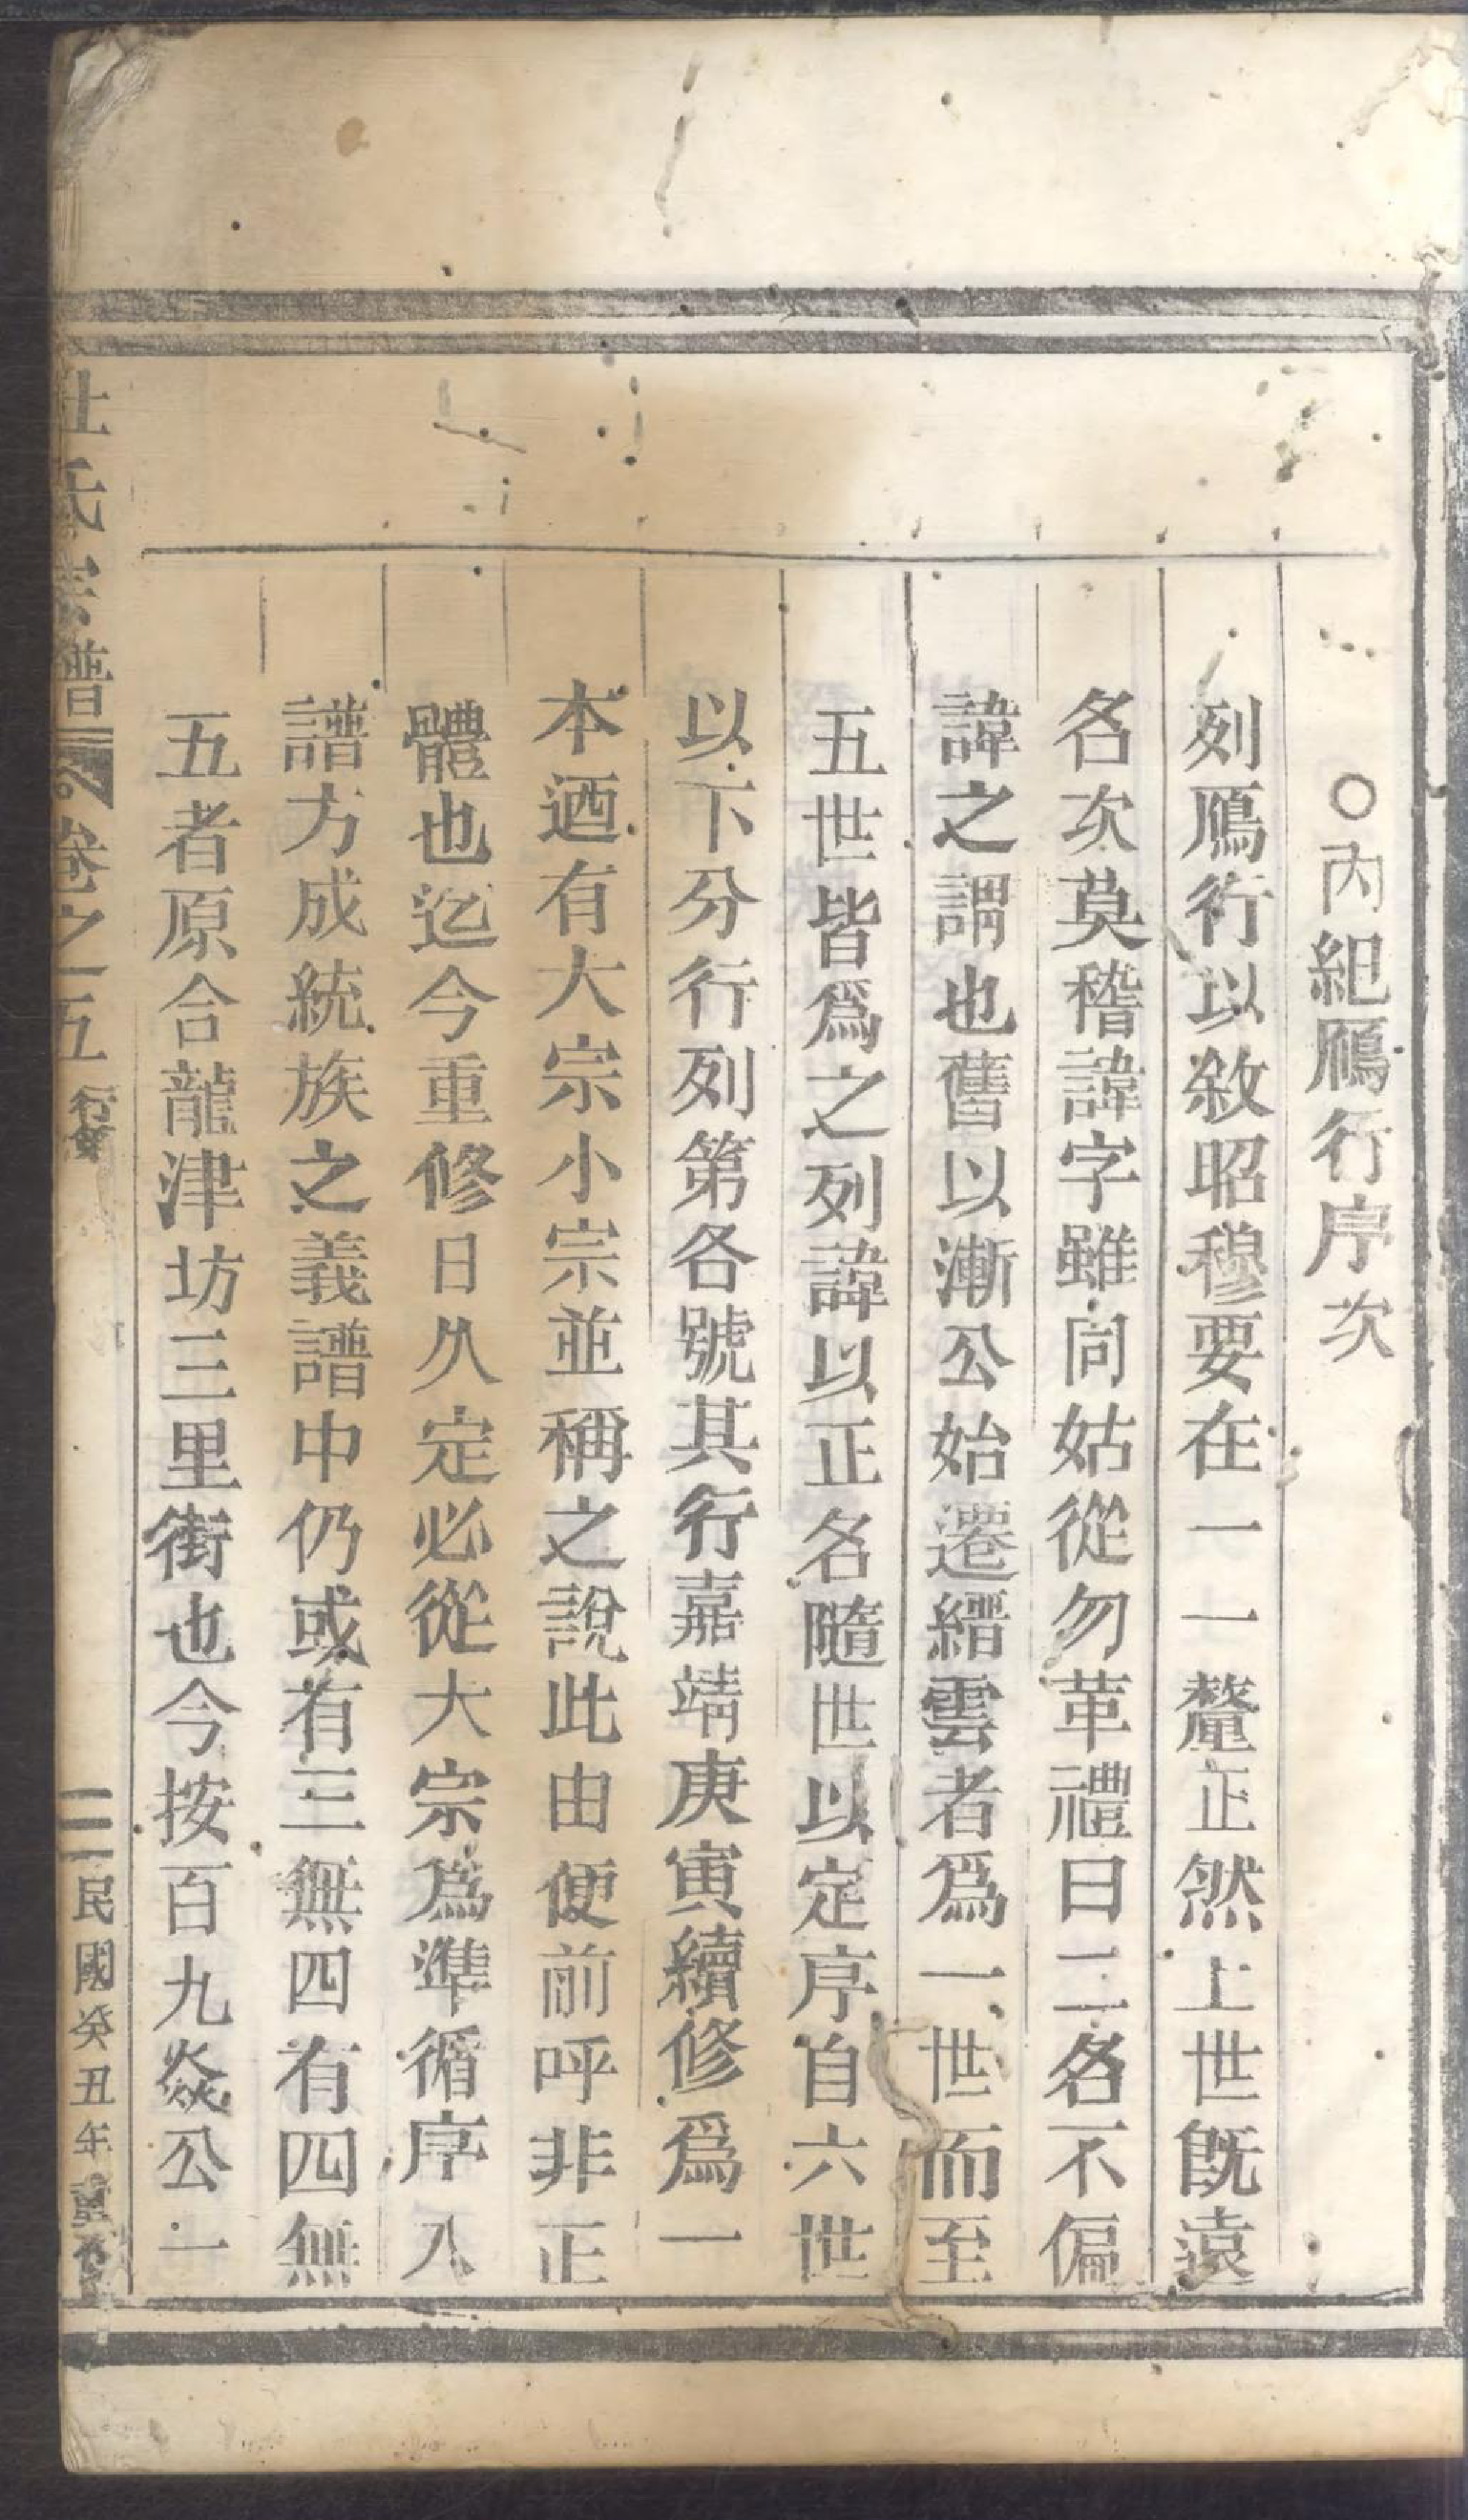 ○內紀鴈行序次
列鴈行以敘昭穆要在一一釐正然上世旣遠
名次莫稽諱字雖同姑從勿革禮曰二名不偏
諱之謂也舊以漸公始遷縉雲者爲一世而至
五世皆爲之列諱以正名隨世以定序自六世
以下分行列第各號其行嘉靖庚寅續修爲一
本迺有大宗小宗並稱之說此由便前呼非正
體也迄今重修日久定必從大宗爲準循序入
譜方成統族之義譜中仍或有三無四有四無
五者原合龍津坊三里街也今按百九焱公一
杜氏宗譜 卷之五 行第 二 民國癸丑年重修